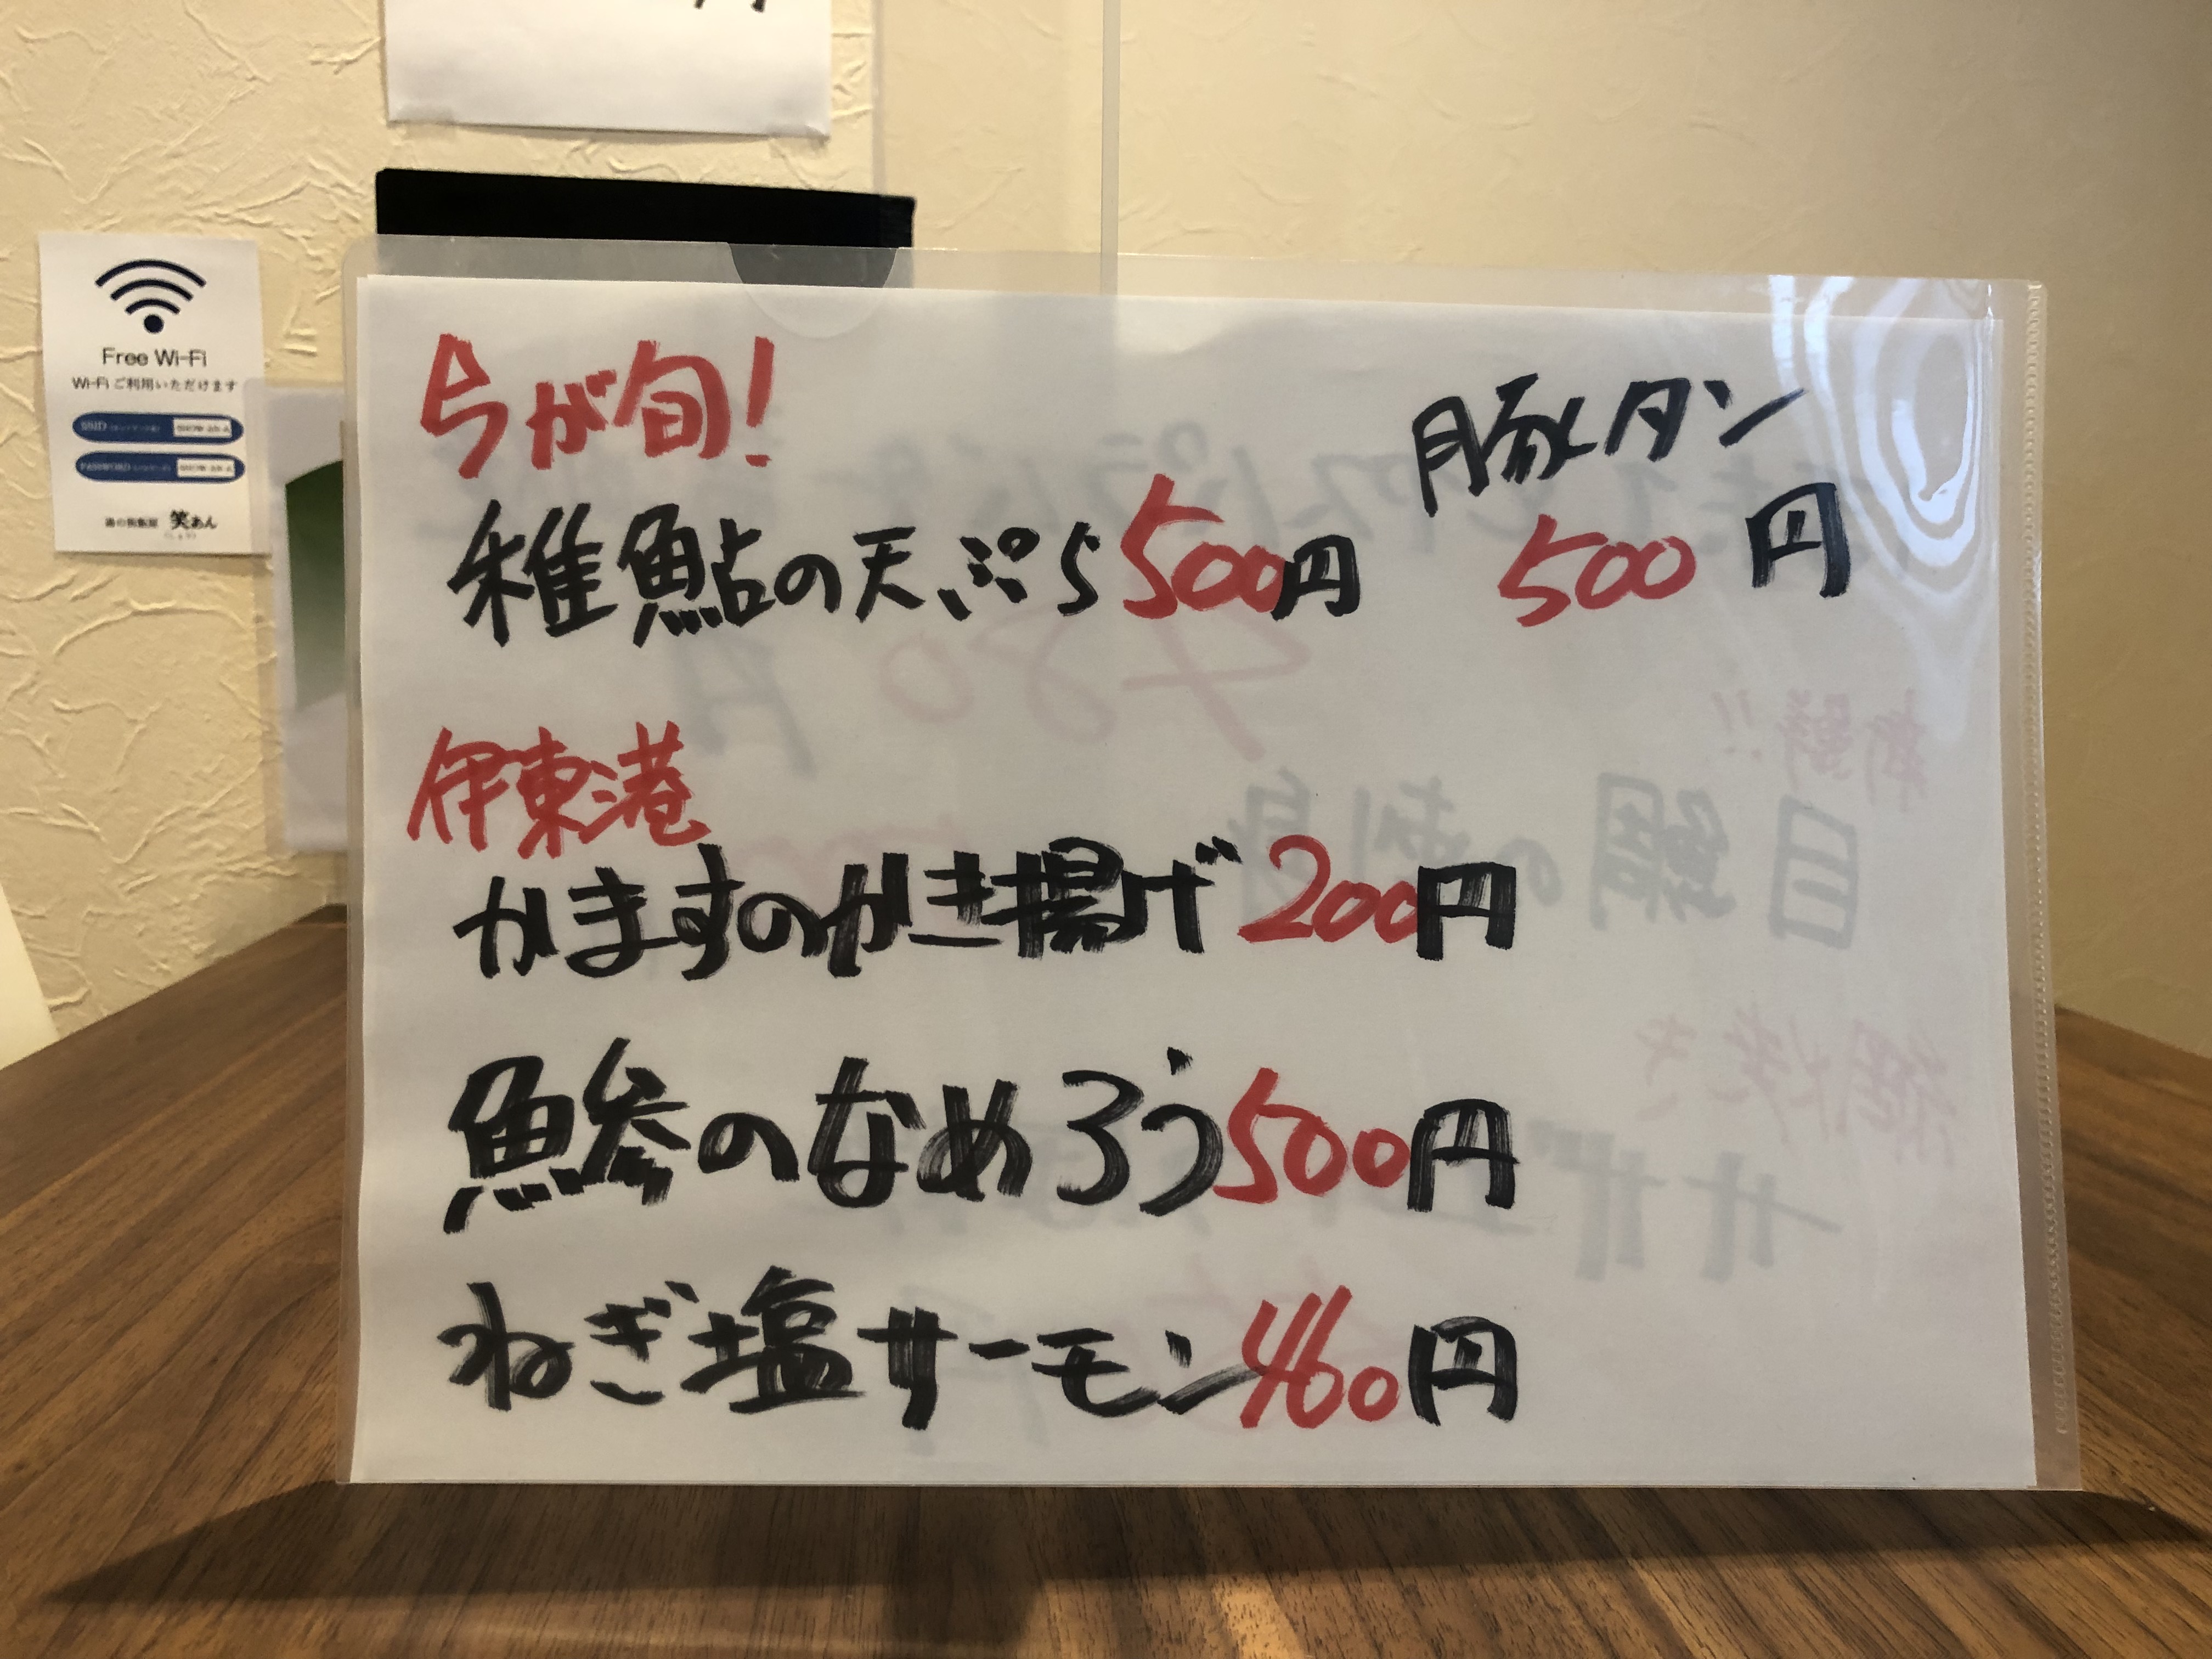 Free Wi-Fi
Wi-Fi ご利用いただけます
SSID
PASSWORD
笑あん
今が旬!
稚鮎の天ぷら500円
豚タン
500円
伊東港
かますのかき揚げ200円
鯵のなめろう500円
ねぎ塩サーモン460円